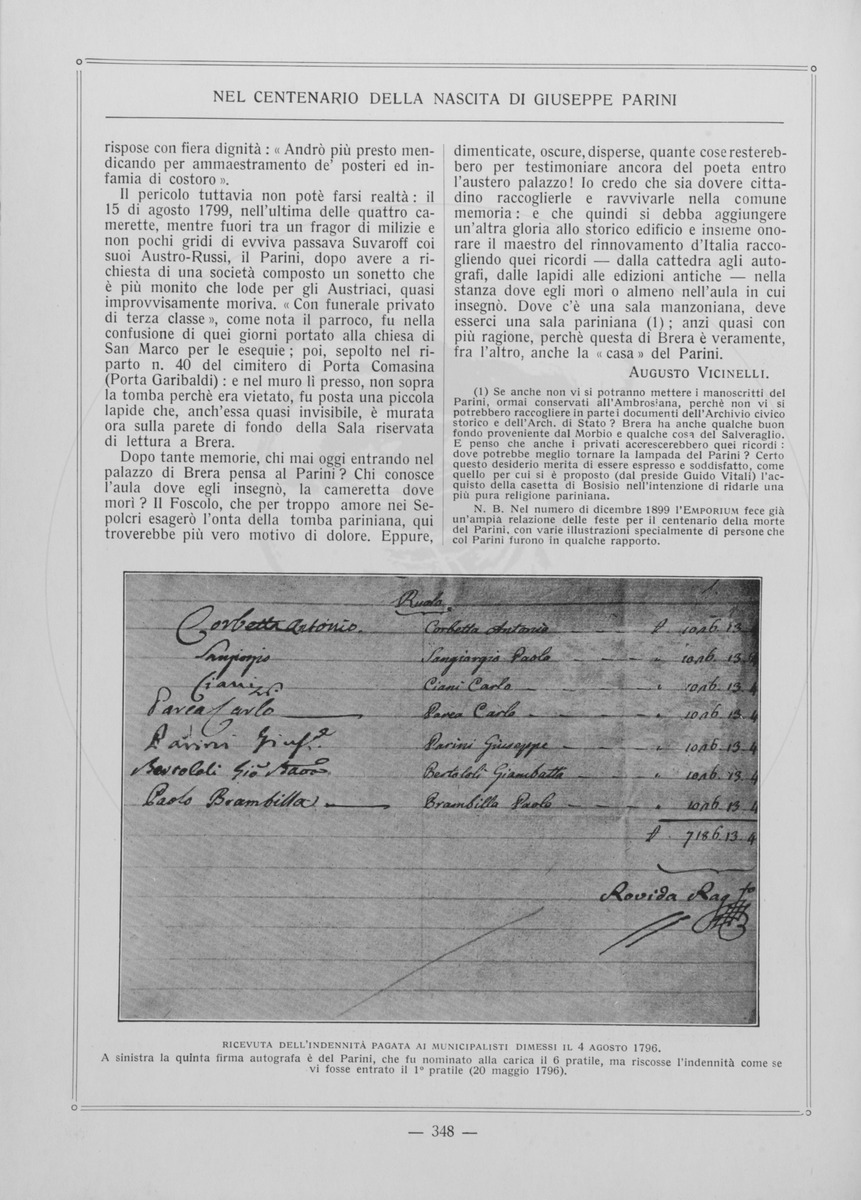 NEL CENTENARIO DELLA NASCITA DI GIUSEPPE PARINI
rispose con fiera dignità : « Andrò più presto men-
dicando per ammaestramento de' posteri ed in-
famia di costoro ».
Il pericolo tuttavia non potè farsi realtà : il
15 di agosto 1799, nell'ultima delle quattro ca-
merette, mentre fuori tra un fragor di milizie e
non pochi gridi di evviva passava Suvaroff coi
suoi Austro-Russi, il Parini, dopo avere a ri-
chiesta di una società composto un sonetto che
è più monito che lode per gli Austriaci, quasi
improvvisamente moriva. « Con funerale privato
di terza classe », come nota il parroco, fu nella
confusione di quei giorni portato alla chiesa di
San Marco per le esequie ; poi, sepolto nel ri-
parto n. 40 del cimitero di Porta Comasina
(Porta Garibaldi) : e nel muro lì presso, non sopra
la tomba perchè era vietato, fu posta una piccola
lapide che, anch'essa quasi invisibile, è murata
ora sulla parete di fondo della Sala riservata
di lettura a Brera.
Dopo tante memorie, chi mai oggi entrando nel
palazzo di Brera pensa al Parini ? Chi conosce
l'aula dove egli insegnò, la cameretta dove
morì ? Il Foscolo, che per troppo amore nei Se-
polcri esagerò l'onta della tomba pariniana, qui
troverebbe più vero motivo di dolore. Eppure,
dimenticate, oscure, disperse, quante cose restereb-
bero per testimoniare ancora del poeta entro
l'austero palazzo ! Io credo che sia dovere citta-
dino raccoglierle e ravvivarle nella comune
memoria : e che quindi si debba aggiungere
un'altra gloria allo storico edificio e insieme ono-
rare il maestro del rinnovamento d'Italia racco-
gliendo quei ricordi — dalla cattedra agli auto-
grafi, dalle lapidi alle edizioni antiche — nella
stanza dove egli morì o almeno nell'aula in cui
insegnò. Dove c'è una sala manzoniana, deve
esserci una sala pariniana (1) ; anzi quasi con
più ragione, perchè questa di Brera è veramente,
fra l'altro, anche la « casa » del Parini.
AUGUSTO VICINELLI.
(1) Se anche non vi si potranno mettere i manoscritti del
Parini, ormai conservati all'Ambrosiana, perchè non vi si
potrebbero raccogliere in parte i documenti dell'Archivio civico
storico e dell'Arch. di Stato ? Brera ha anche qualche buon
fondo proveniente dal Morbio e qualche cosa del Salveraglio.
E penso che anche i privati accrescerebbero quei ricordi :
dove potrebbe meglio tornare la lampada del Parini ? Certo
questo desiderio merita di essere espresso e soddisfatto, come
quello per cui si è proposto (dal preside Guido Vitali) l'ac-
quisto della casetta di Bosisio nell'intenzione di ridarle una
più pura religione pariniana.
N. B. Nel numero di dicembre 1899 l'EMPORIUM fece già
un'ampia relazione delle feste per il centenario della morte
del Parini, con varie illustrazioni specialmente di persone che
col Parini furono in qualche rapporto.
Ruolo
Corbetta Antonio. Corbetta Antonio 1026. 13. 4
Sangiorgio Sangiorgio Paolo 1026. 13.
Ciani Ciani Carlo 1026. 13. 4
Parea Carlo Parea Carlo 1026. 13. 4
Parini Giuse. Parini Giuseppe 1026. 13. 4
Bertololi Gio Batta Bertololi Giambatta 1026. 13. 4
Paolo Brambilla Brambilla Paolo 1026. 13. 4
7186. 13. 4
Rovida Rag
RICEVUTA DELL'INDENNITÀ PAGATA AI MUNICIPALISTI DIMESSI IL 4 AGOSTO 1796.
A sinistra la quinta firma autografa è del Parini, che fu nominato alla carica il 6 pratile, ma riscosse l'indennità come se
vi fosse entrato il 1º pratile (20 maggio 1796).
— 348 —